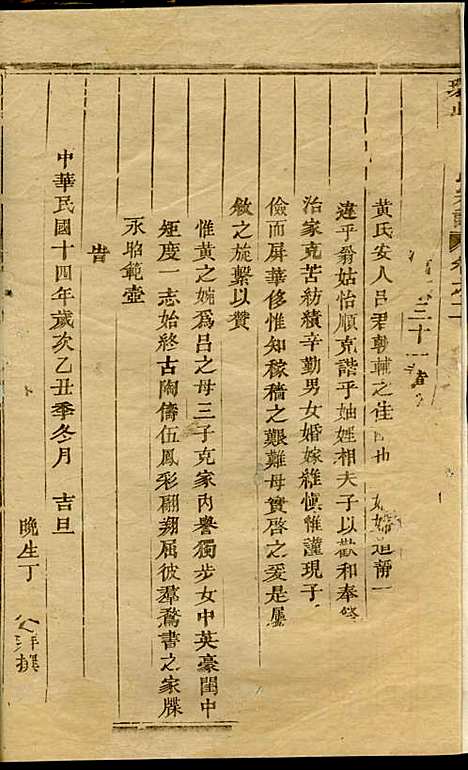 三十一
黃氏安人呂君朝輔之佳 婦道靜一
違乎翁姑怡順克諧乎妯娌相夫子以歡和奉
治家克苦紡績辛勤男女婚嫁維慎惟謹現子
儉而屏華侈惟知稼穡之艱難母實啓之爰是屬
敘之旋繫以贊
惟黃之婉爲呂之母三子克家內譽獨步女中英豪閨中
矩度一志始終古陶儔伍鳳彩翩翔屈彼羣鶩書之家牒
永昭範壼
旹
中華民國十四年歲次乙丑季冬月 吉旦
晚生丁 撰